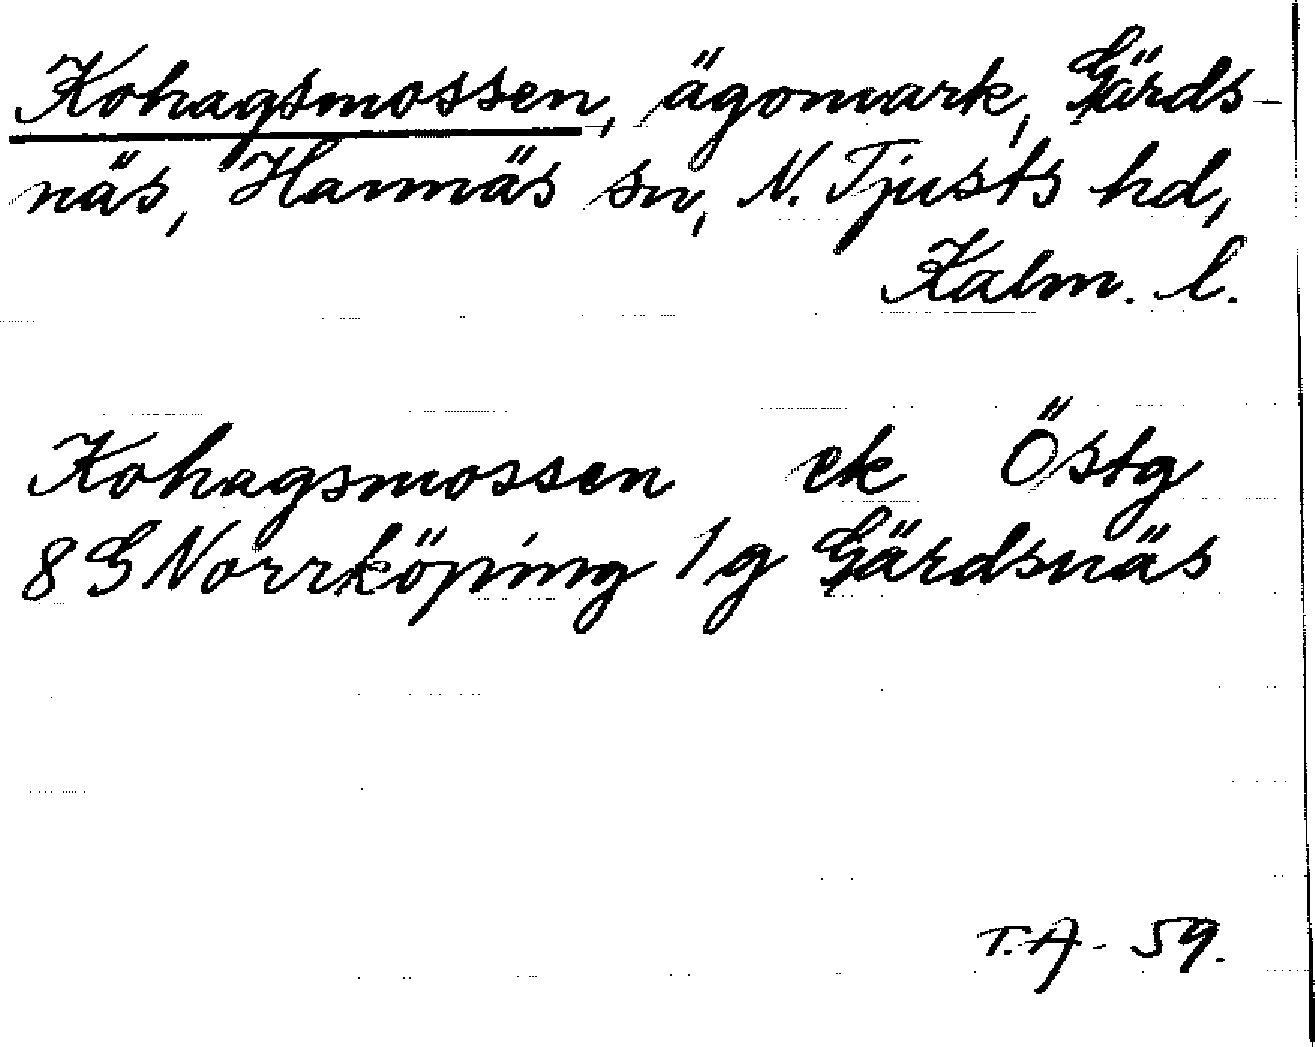 Kohagsmossen, ägomark, Gärds-
näs, Hannäs sn, N. Tjusts hd,
Kalm. l.
Kohagsmossen ek Östg
8 G Norrköping 1 g Gärdsnäs
T.A - 59.